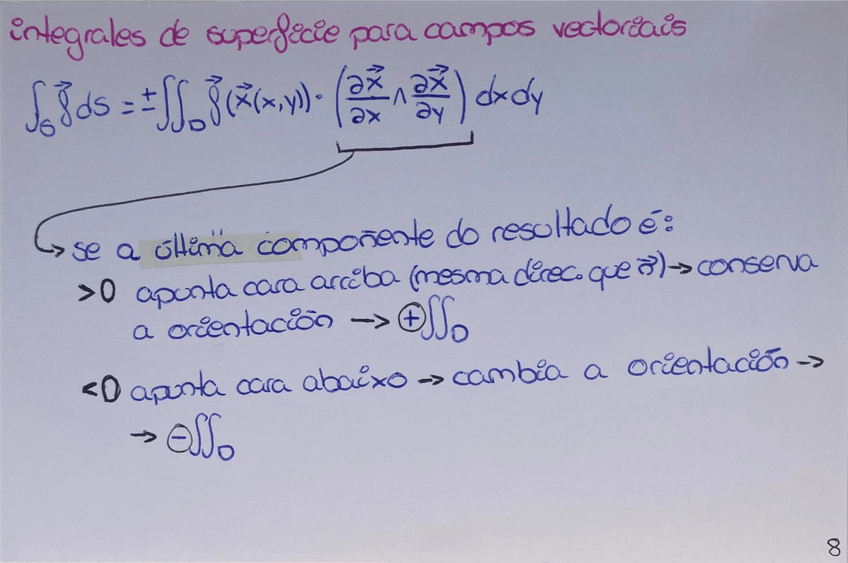 integrales de superficie para campos vectoriais
∫_S f⃗ ds = ±∬_D f⃗(X⃗(x,y)) · (∂X⃗/∂x ∧ ∂X⃗/∂y) dxdy
→ se a última componente do resultado é:
>0 apunta cara arriba (mesma direc. que n⃗) → conserva
a orientación → ⊕∬_D
<0 apunta cara abaixo → cambia a orientación →
→ ⊖∬_D
8